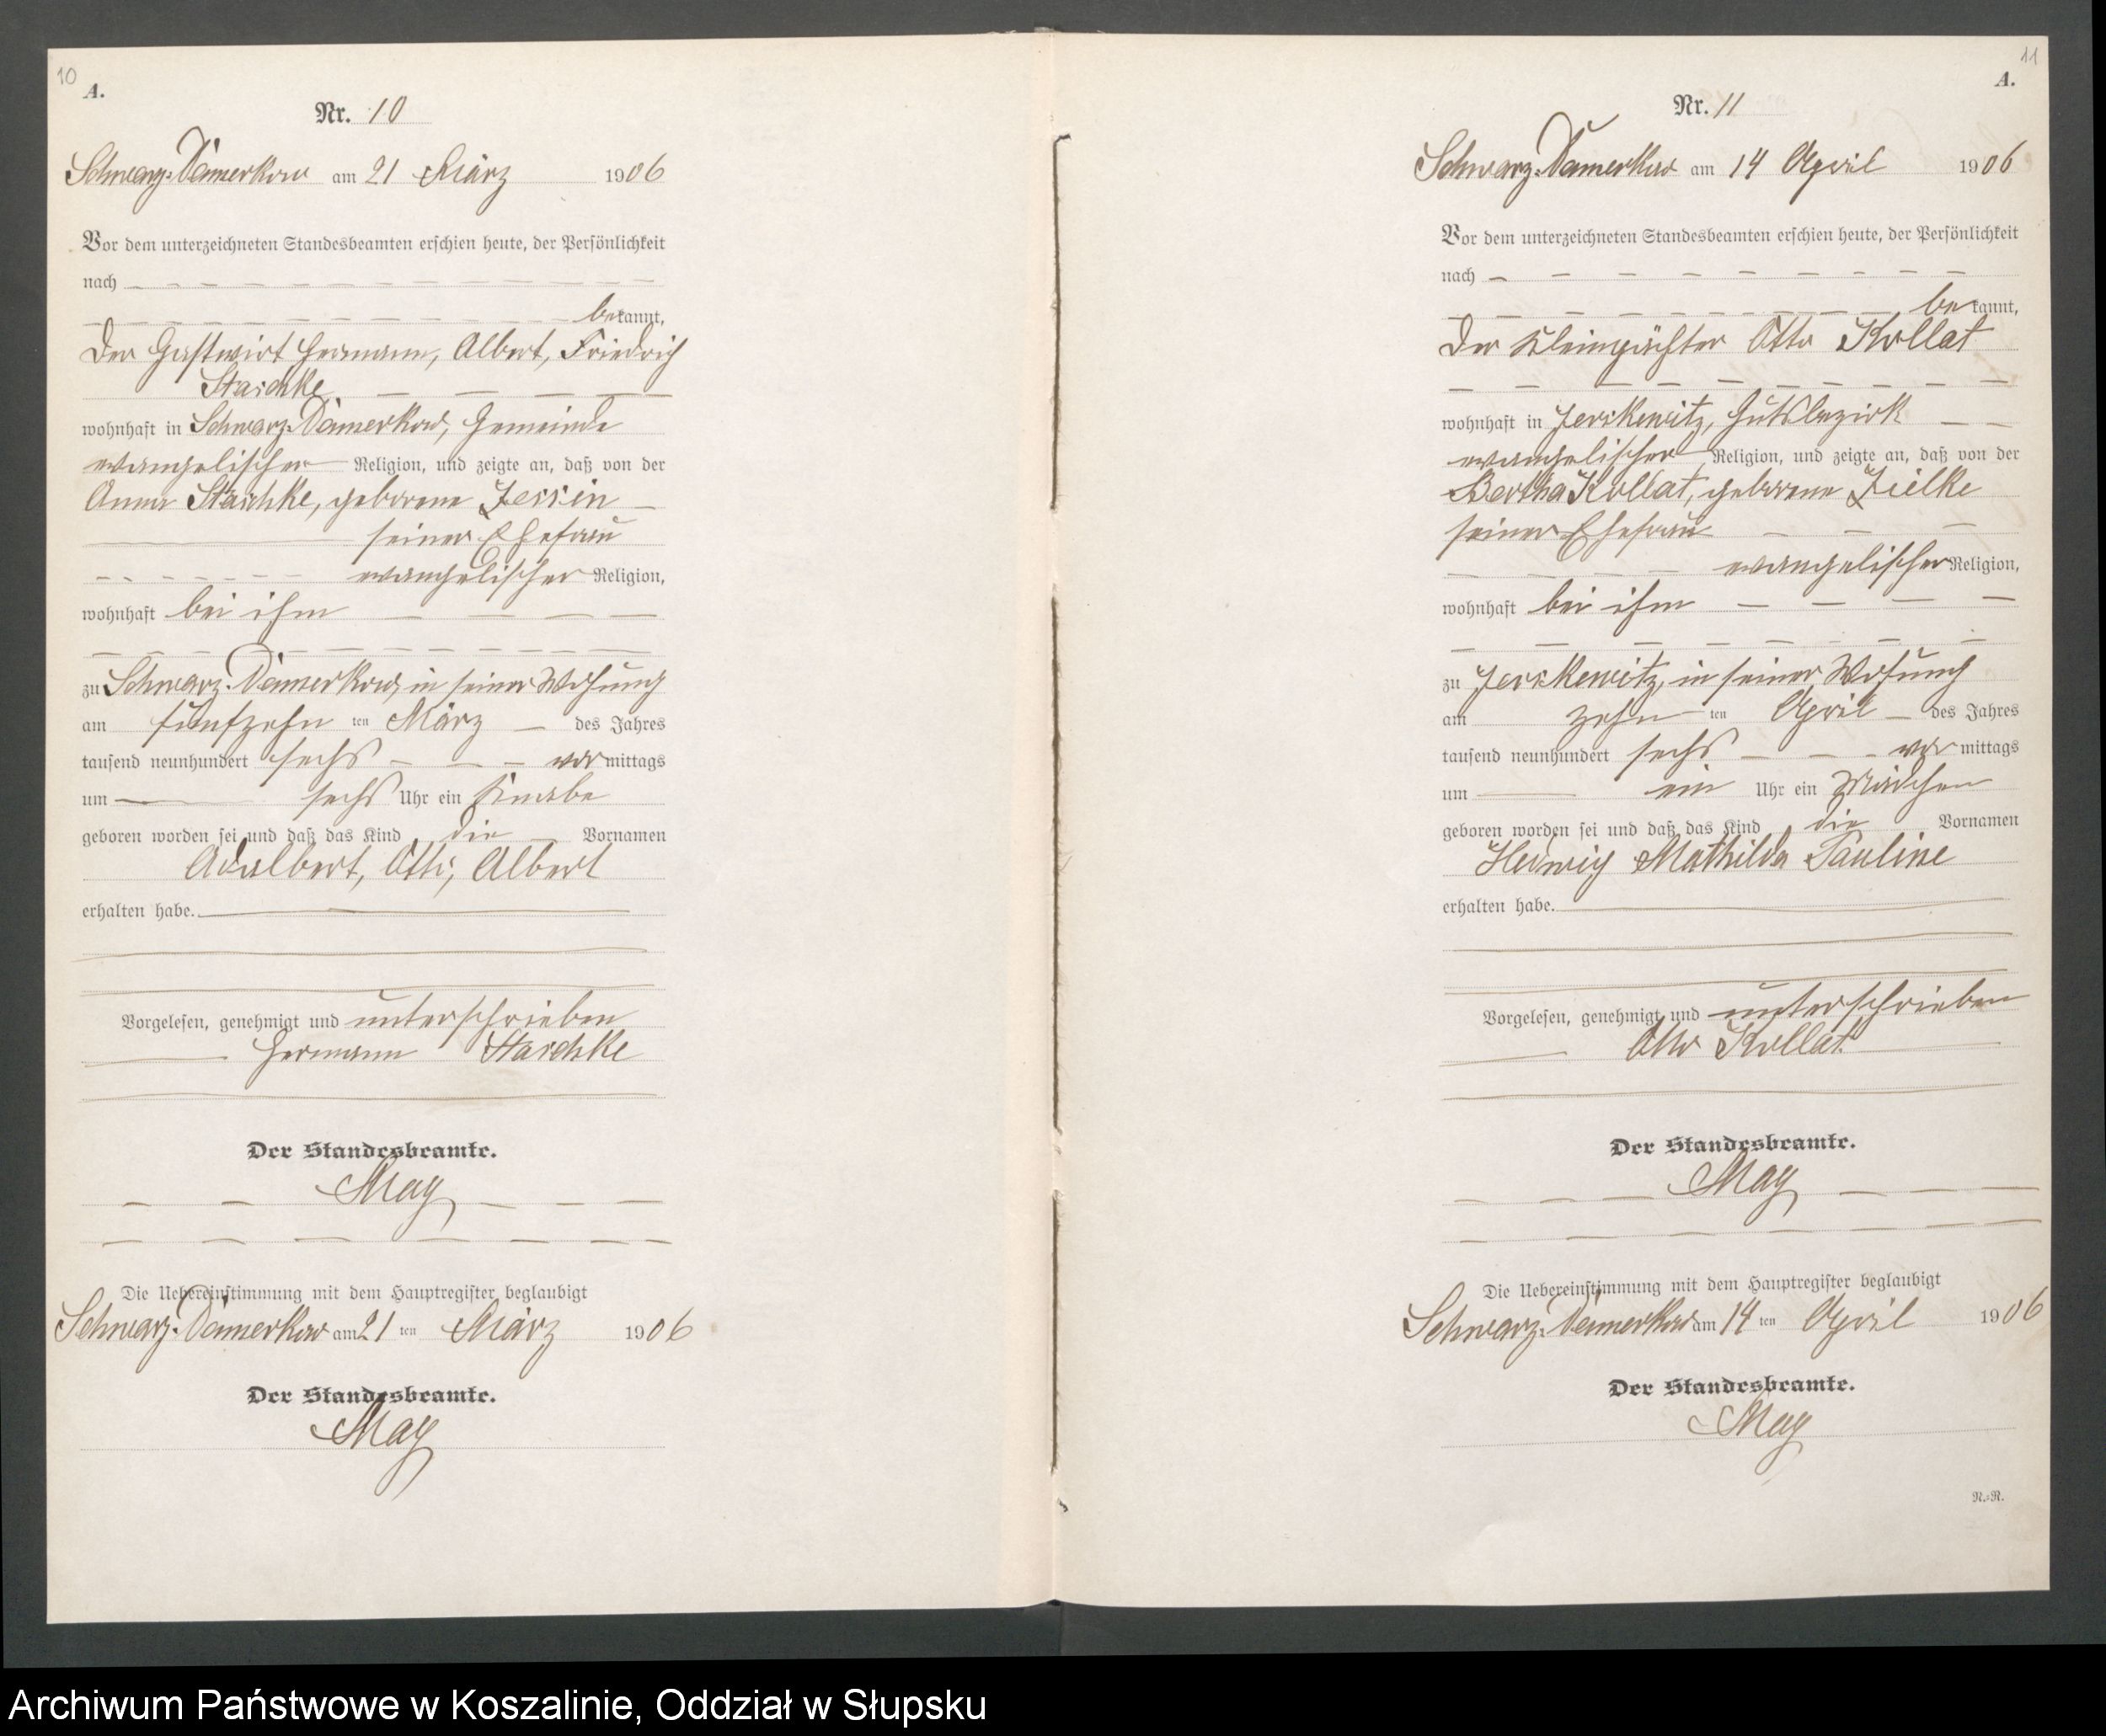 10
A.
Nr. 10
Schwarz-Damerkow am 21 März 1906
Vor dem unterzeichneten Standesbeamten erschien heute, der Persönlichkeit
nach
bekannt,
Der Gastwirt Hermann, Albert, Friedrich
Staschke
wohnhaft in Schwarz-Damerkow, Gemeinde
evangelischer Religion, und zeigte an, daß von der
Anna Staschke, geborene Jessin
seiner Ehefrau
evangelischer Religion,
wohnhaft bei ihm
zu Schwarz-Damerkow, in seiner Wohnung
am fünfzehn ten März des Jahres
tausend neunhundert sechs vormittags
um sechs Uhr ein Knabe
geboren worden sei und daß das Kind die Vornamen
Adalbert, Otto, Albert
erhalten habe.
Vorgelesen, genehmigt und unterschrieben
Hermann Staschke
Der Standesbeamte.
May
Die Uebereinstimmung mit dem Hauptregister beglaubigt
Schwarz-Damerkow am 21 ten März 1906
Der Standesbeamte.
May
11
A.
Nr. 11
Schwarz-Damerkow am 14 April 1906
Vor dem unterzeichneten Standesbeamten erschien heute, der Persönlichkeit
nach
bekannt,
Der Kleinpächter Otto Kollat
wohnhaft in Jerskewitz, Gutsbezirk
evangelischer Religion, und zeigte an, daß von der
Bertha Kollat, geborene Zielke
seiner Ehefrau
evangelischer Religion,
wohnhaft bei ihm
zu Jerskewitz, in seiner Wohnung
am zehn ten April des Jahres
tausend neunhundert sechs vormittags
um ein Uhr ein Mädchen
geboren worden sei und daß das Kind die Vornamen
Hedwig Mathilda Pauline
erhalten habe.
Vorgelesen, genehmigt und unterschrieben
Otto Kollat
Der Standesbeamte.
May
Die Uebereinstimmung mit dem Hauptregister beglaubigt
Schwarz-Damerkow am 14 ten April 1906
Der Standesbeamte.
May
N.=R.
Archiwum Państwowe w Koszalinie, Oddział w Słupsku